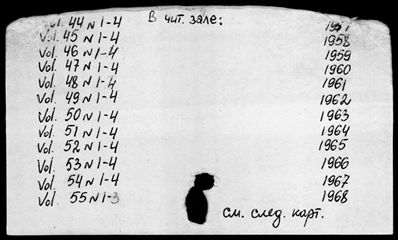 В чит. зале:
Vol. 44 N 1-4 1957
Vol. 45 N 1-4 1958
Vol. 46 N 1-4 1959
Vol. 47 N 1-4 1960
Vol. 48 N 1-4 1961
Vol. 49 N 1-4 1962
Vol. 50 N 1-4 1963
Vol. 51 N 1-4 1964
Vol. 52 N 1-4 1965
Vol. 53 N 1-4 1966
Vol. 54 N 1-4 1967
Vol. 55 N 1-3 1968
См. след. карт.